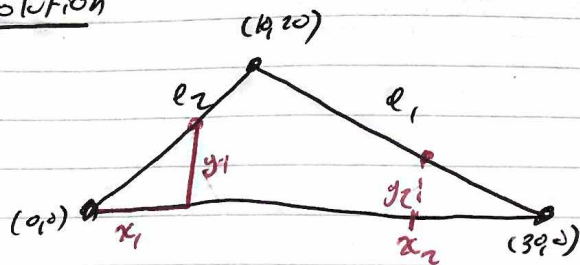 Solution
(10,20)
e2
e1
y1
y2
(0,0)
x1
x2
(30,0)